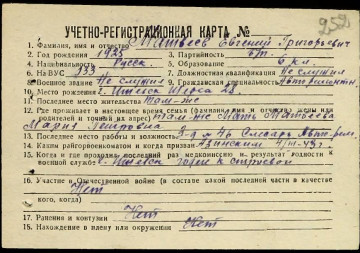 252
УЧЕТНО-РЕГИСТРАЦИОННАЯ КАРТА №
1. Фамилия, имя и отчество Матвеев Евгений Григорьевич
2. Год рождения 1925 3. Партийность б/п.
4. Национальность Русск. 5. Образование 6 кл.
6. На ВУС 133 7. Должностная квалификация Не служил
8. Военное звание Не служил 9. Гражданская специальность
10. Место рождения г. Ижевск
11. Последнее место жительства там-же
12. Где проживает в настоящее время семья (фамилия, имя и отчество жены или
родителей и точный их адрес) там-же Мать Матвеева
Мария Петровна
13. Последнее место работы и должность 3-д 46 Слесарь
14. Каким райгорвоенкоматом и когда призван Азинским
15. Когда и где проходил последний раз медкомиссию и результат годности к
военной службе г. Ижевск годен к строевой
16. Участие в Отечественной войне (в составе какой последней части в качестве
кого, когда) Нет
17. Ранения и контузии Нет
18. Нахождение в плену или окружении Нет